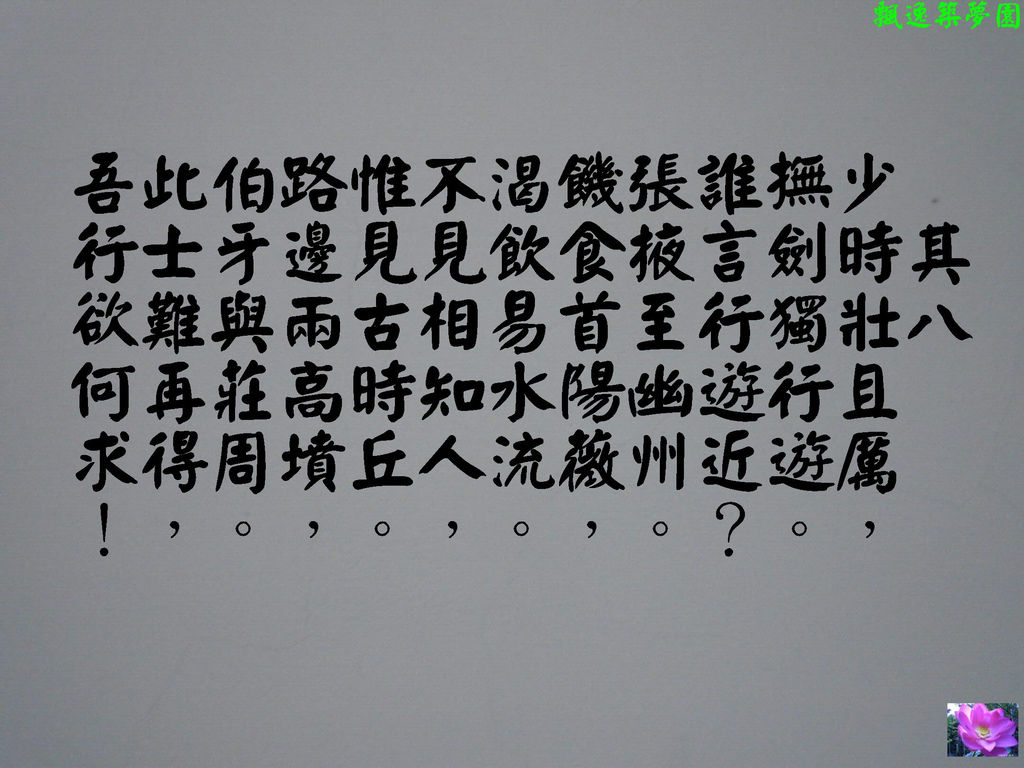 飄逸築夢園
其八
少時壯且厲，
撫劍獨行遊。
誰言行遊近？
張掖至幽州。
饑食首陽薇，
渴飲易水流。
不見相知人，
惟見古時丘。
路邊兩高墳，
伯牙與莊周。
此士難再得，
吾行欲何求！